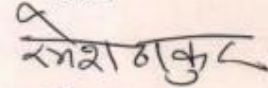 रमेश ठाकुर